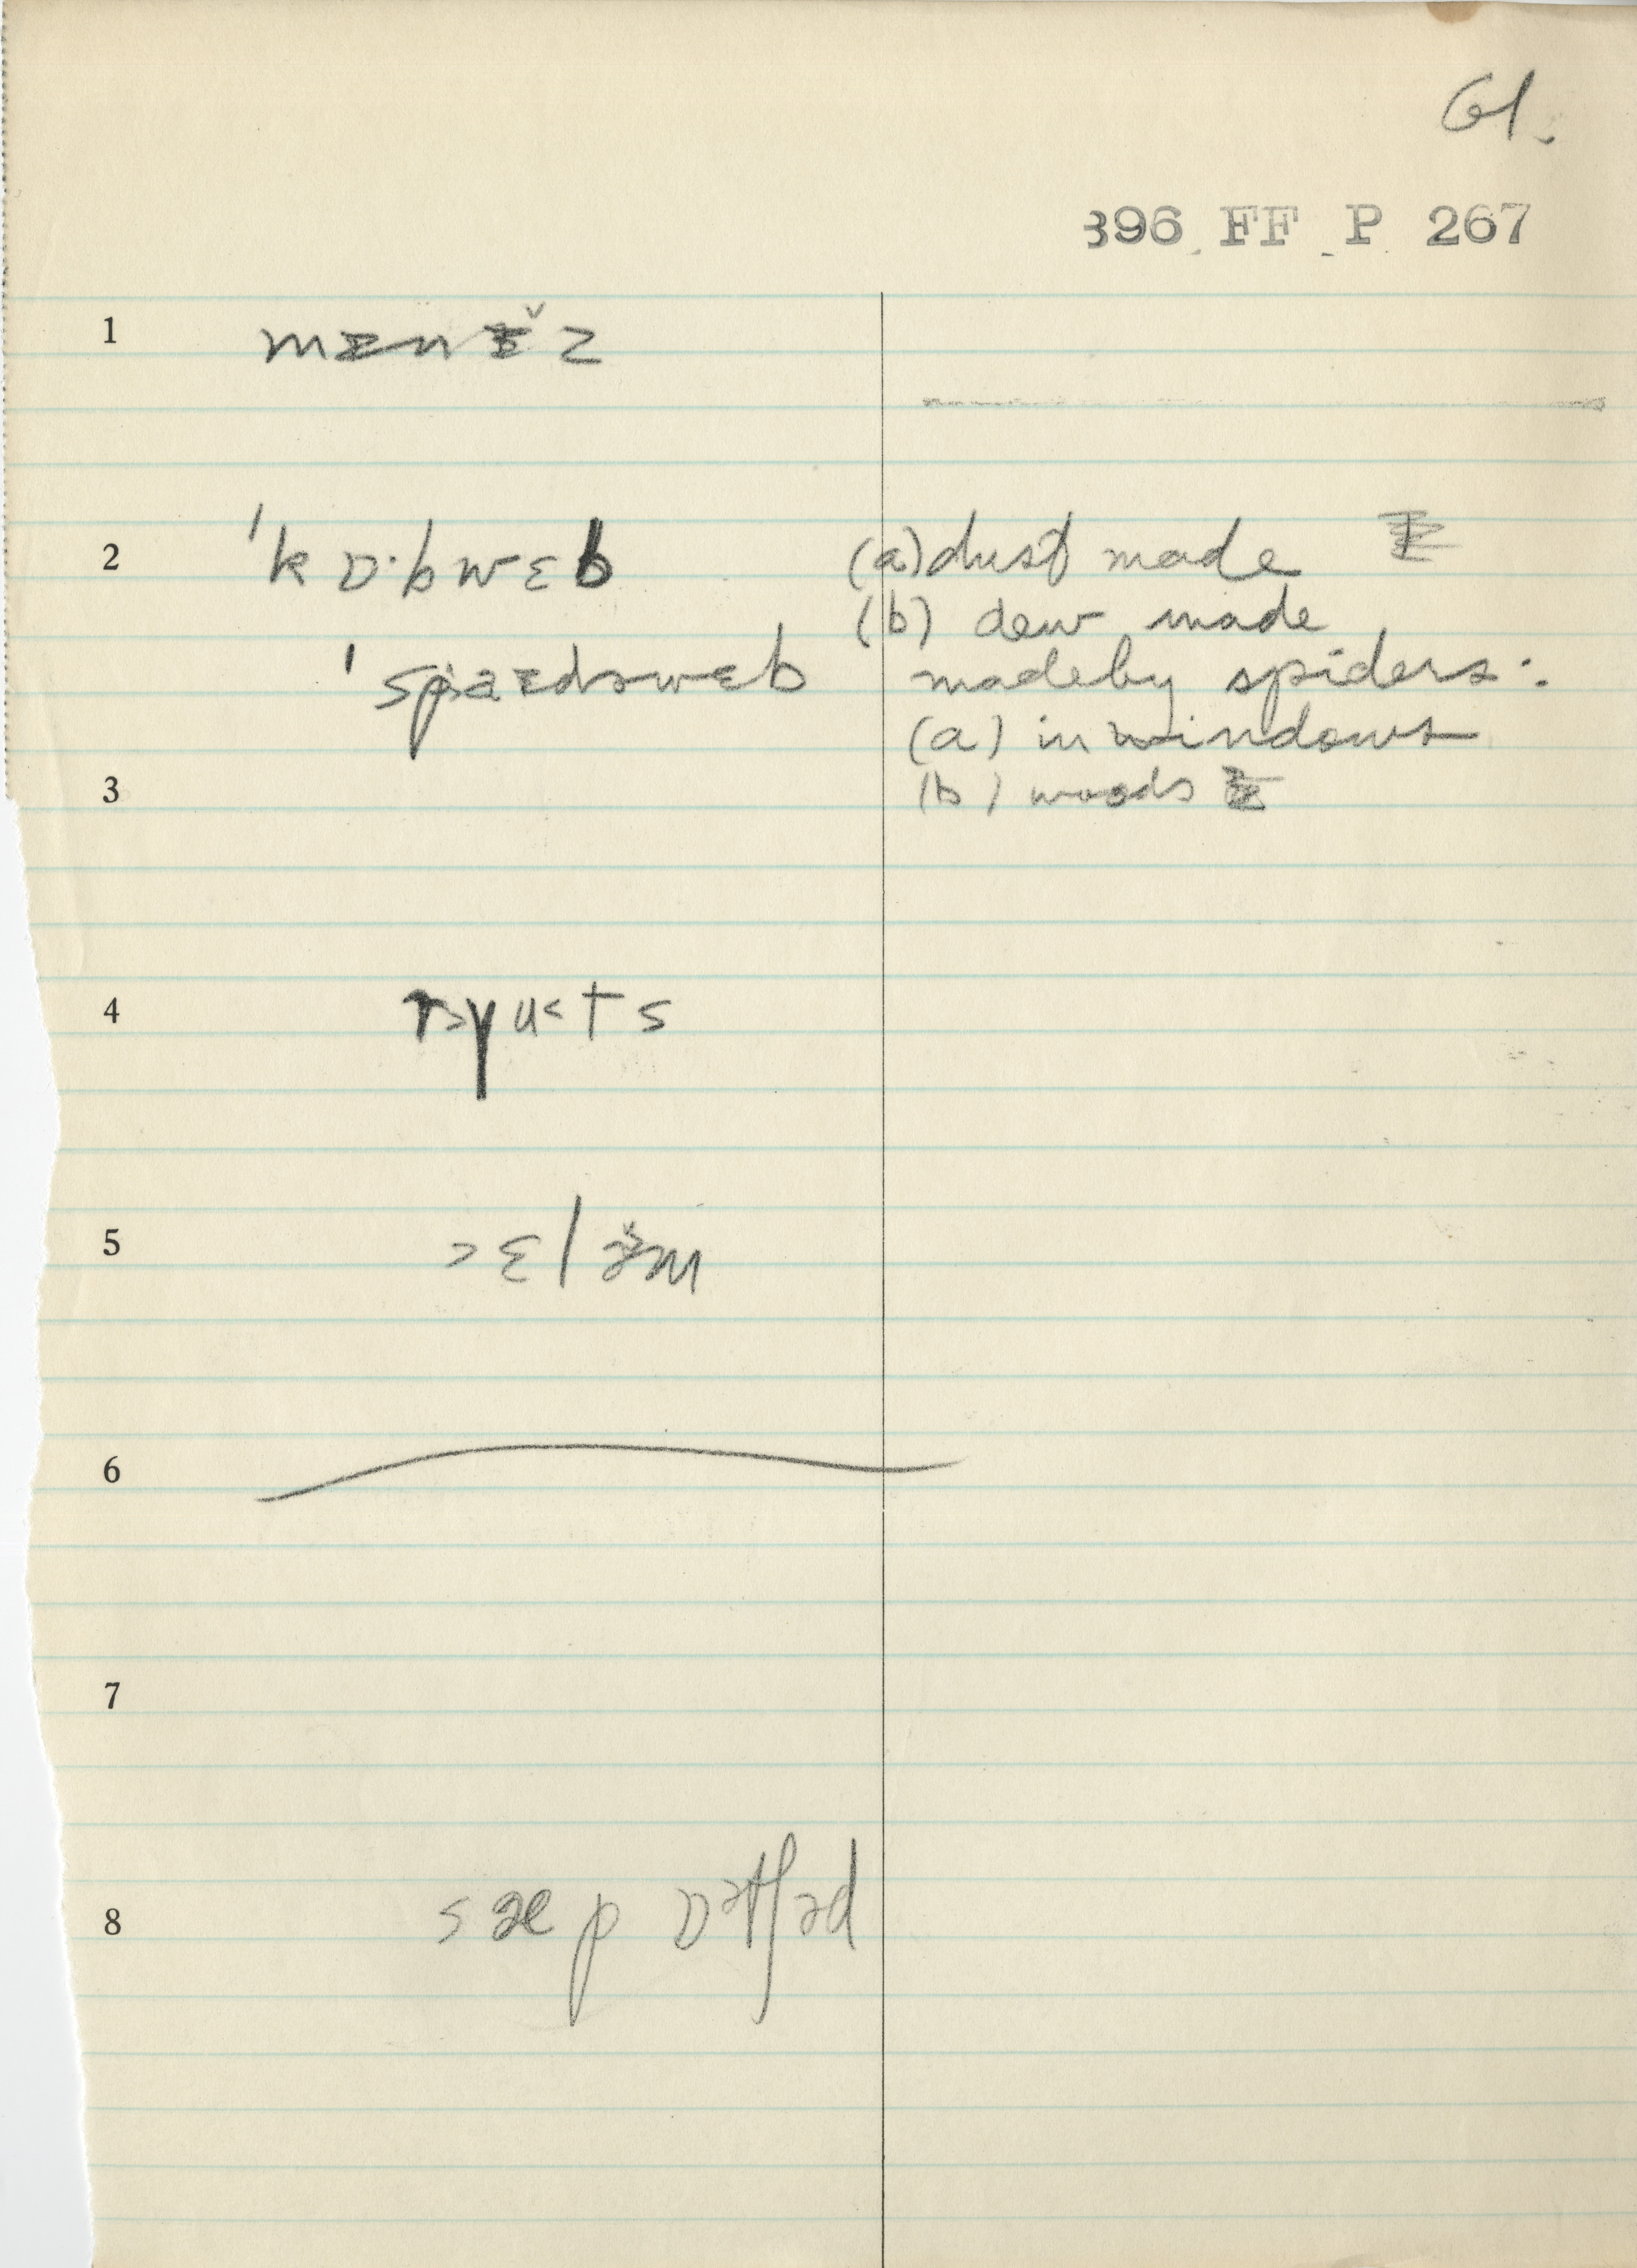 61.
396 FF P 267
1 mɪnɪ̌z
2 'kɒ·bwɛb (a) dust made
(b) dew made
'spaɪdɚwɛb made by spiders:
(a) in windows
3 (b) woods
4
5 ɛlə̌m
6
7
8 sæp ɒətʃəd